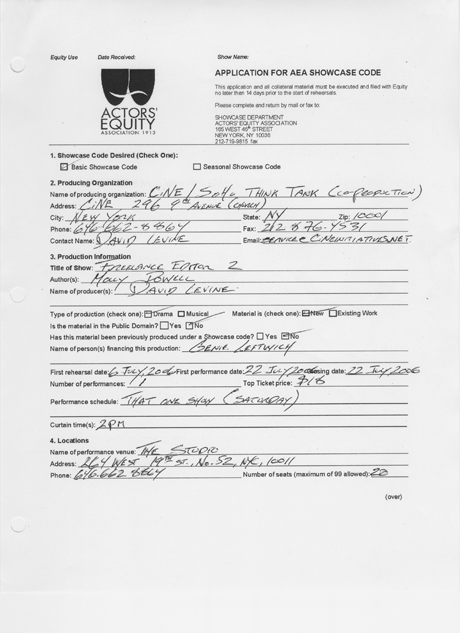 Equity Use Date Received: Show Name:
ACTORS'
EQUITY
ASSOCIATION 1913
APPLICATION FOR AEA SHOWCASE CODE
This application and all collateral material must be executed and filed with Equity
no later than 14 days prior to the start of rehearsals.
Please complete and return by mail or fax to:
SHOWCASE DEPARTMENT
ACTORS' EQUITY ASSOCIATION
165 WEST 46th STREET
NEW YORK, NY 10036
212-719-9815 fax
1. Showcase Code Desired (Check One):
Basic Showcase Code Seasonal Showcase Code
2. Producing Organization
Name of producing organization: CiNE / SoHo THINK TANK (CO-PRODUCTION)
Address: CiNE, 296 9th AVENUE (CHURCH)
City: NEW YORK State: NY Zip: 10001
Phone: 646-662-8864 Fax: 212-876-4531
Contact Name: DAVID LEVINE Email: @CINEINITIATIVES.NET
3. Production Information
Title of Show: FREELANCE EDITOR 2
Author(s): MOLLY POWELL
Name of producer(s): DAVID LEVINE
Type of production (check one): Drama Musical Material is (check one): New Existing Work
Is the material in the Public Domain? Yes No
Has this material been previously produced under a Showcase code? Yes No
Name of person(s) financing this production: LEFTWICH
First rehearsal date: 6 JULY, 2006 First performance date: 22 JULY 2006 Closing date: 22 JULY 2006
Number of performances: 1 Top Ticket price: $18
Performance schedule: THAT ONE SHOW (SATURDAY)
Curtain time(s): 2PM
4. Locations
Name of performance venue: THE STUDIO
Address: 264 WEST 19th ST., No. 52, NYC, 10011
Phone: 646.662 8864 Number of seats (maximum of 99 allowed): 20
(over)